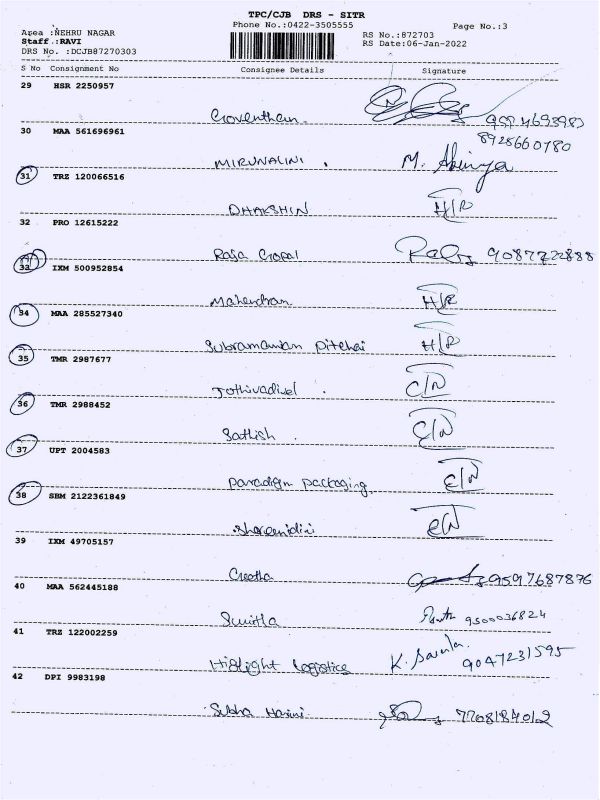 TPC/CJB DRS - SITR
Phone No.:0422-3505555
Page No.:3
Area :NEHRU NAGAR
RS No.:872703
Staff.:RAVI
RS Date:06-Jan-2022
DRS No. :DCJB87270303
S No Consignment No Consignee Details Signature
29 HSR 2250957
Goventhan
30 MAA 561696961
8925660780
MIRUNALINI . M. Abinya
31 TRZ 120066516
DHAKSHIN H/R
32 PRO 12615222
Raja Gopal 9087722888
33 IXM 500952854
Mahendran H/R
34 MAA 285527340
Subramanian Pitchai H/R
35 TMR 2987677
Jothivadivel . C/N
36 TMR 2988452
Sathish . C/N
37 UPT 2004583
Paradigm packaging C/N
38 SBM 2122361849
Shareenidini C/N
39 IXM 49705157
Geetha 9597687876
40 MAA 562445188
Sunitha 9500036824
41 TRZ 122002259
Highlight Logistics K. Sarala 9047231595
42 DPI 9983198
Subha Harini 7708184012